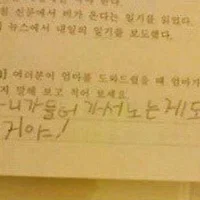 침 신문에서 비가 온다는 일기를 읽었다.
뉴스에서 내일의 일기를 보도했다.
여러분이 엄마를 도와드렸을 때 엄마가
지 말해 보고 적어 보세요.
니가 들어가서 노는게 도
거야!